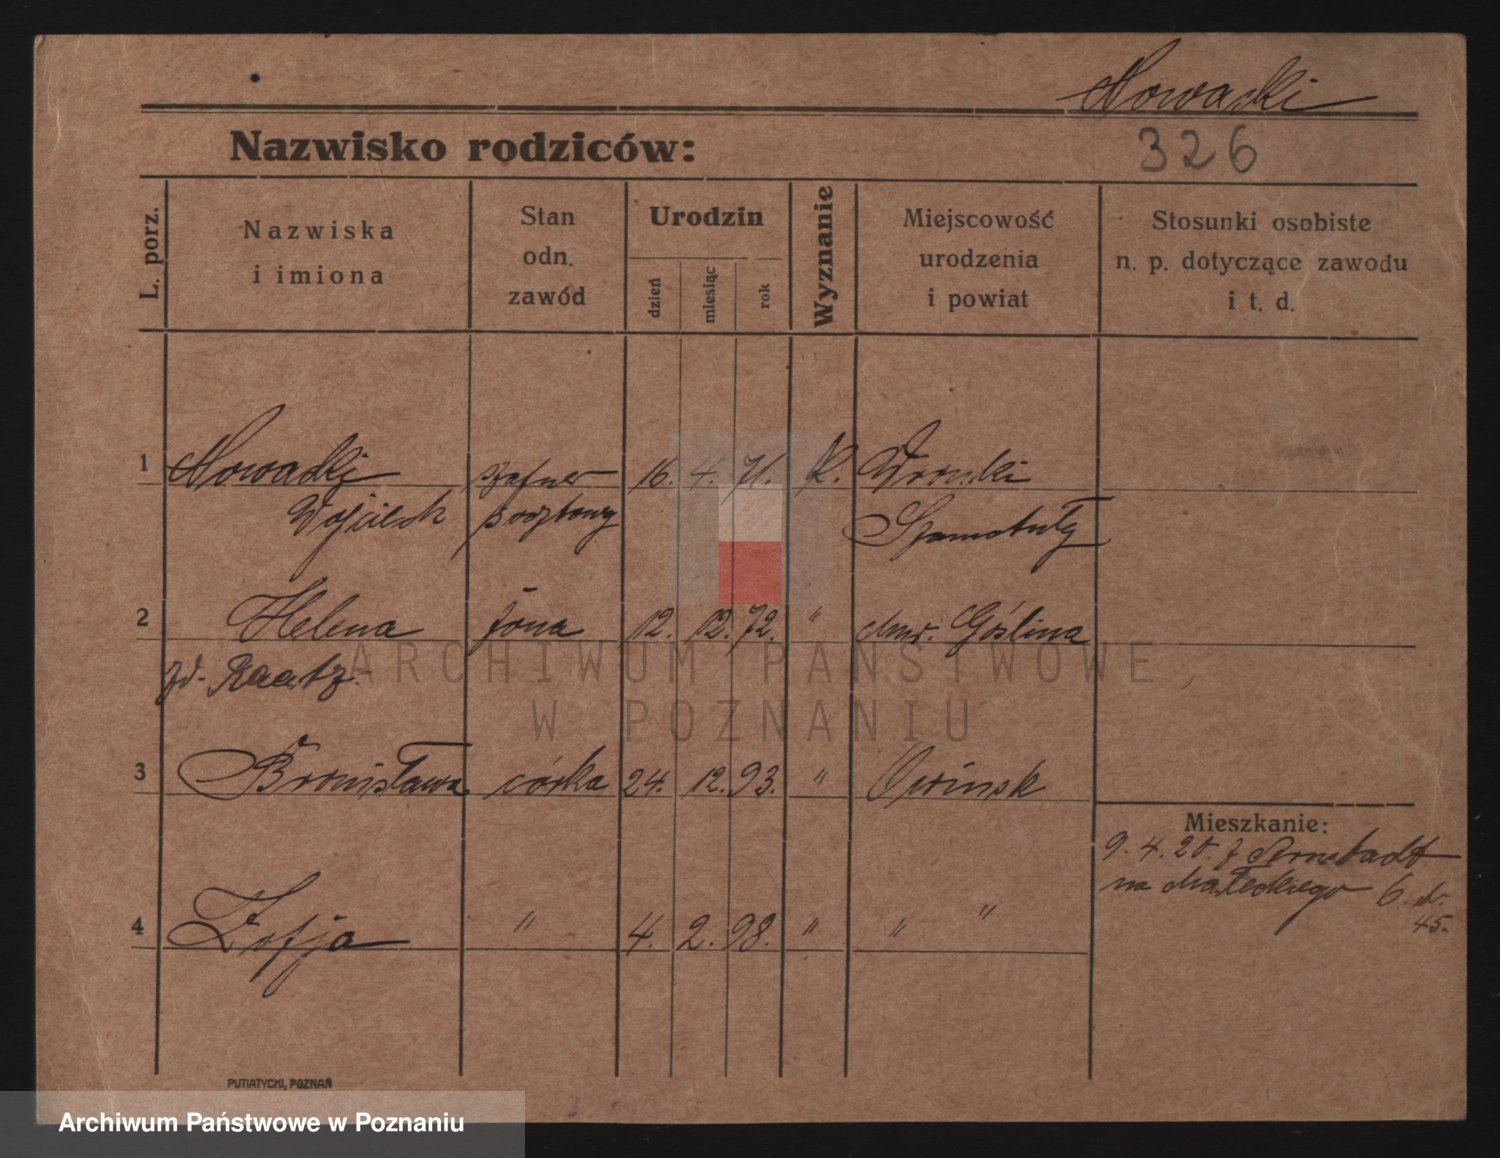 Nowacki
326
Nazwisko rodziców:
L. porz.
Nazwiska
i imiona
Stan
odn.
zawód
Urodzin
dzień
miesiąc
rok
Wyznanie
Miejscowość
urodzenia
i powiat
Stosunki osobiste
n. p. dotyczące zawodu
i t. d.
1 Nowacki szafner 16. 4. 71. K. Wronki
Wojciech pocztowy Szamotuły
2 Helena żona 12. 12. 72. " Góślina
Raatz.
3 Bronisława córka 24. 12. 93. " Owinsk
4 Zofja " 4. 2. 98. " " "
Mieszkanie:
9. 4. 20. z Arnstadt
na Małeckiego 6.
45.
PUTIATYCKI, POZNAŃ
ARCHIWUM PAŃSTWOWE
W POZNANIU
Archiwum Państwowe w Poznaniu